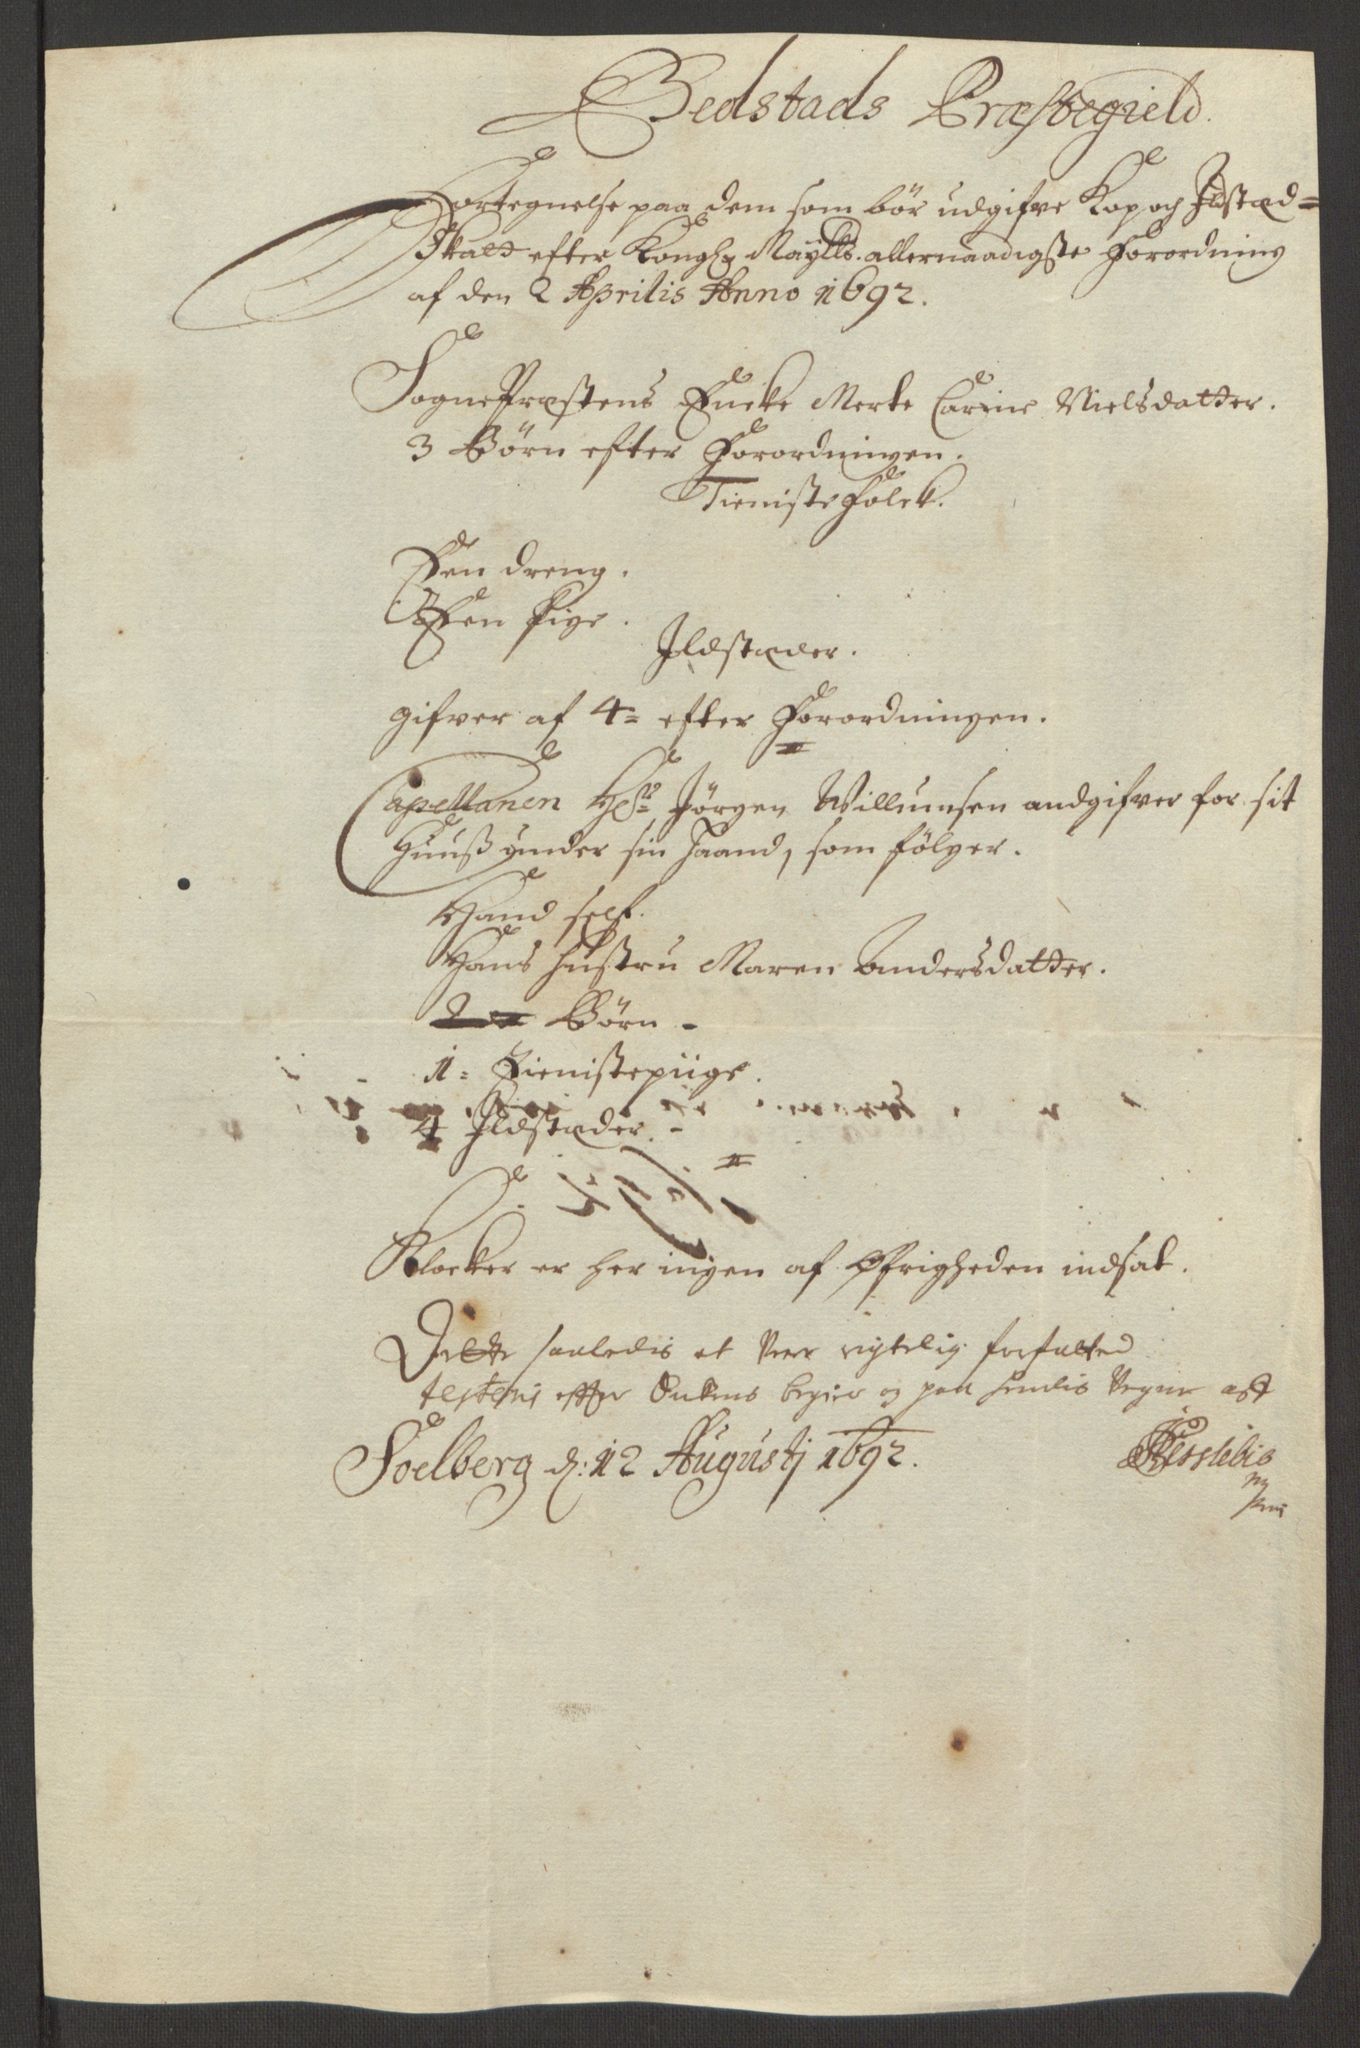 Bedstads Præstegield.
Fortegnelse paa dem som bör udgifve Kop och Ildstæd=
Skatt efter Kongl: Mayᵗᵗˢ. allernaadigste Forordning
af den 2 Aprilis Anno 1692.
SognePræstens Encke Merte Carine Nielsdatter.
3 Börn efter Forordningen.
Tieniste Folck.
Een dreng.
Een Pige.
Ildstæder.
gifver af 4= efter Forordningen.
Capellanen Hr: Jörgen Willumsen andgifver for sit
Huuß under sin Haand, som fölger.
Hand self.
Hans Hustru Maren Andersdatter.
Börn -
1= Tienistepiige.
4 Ildstæder. -
Klocker er her ingen af Øfrigheden indsat.
Dette saaledis at Vere rigtelig forfatted
testeris effter Enkens begier og paa hendis Vegne aff
Soelberg d: 12 Augustj 1692.